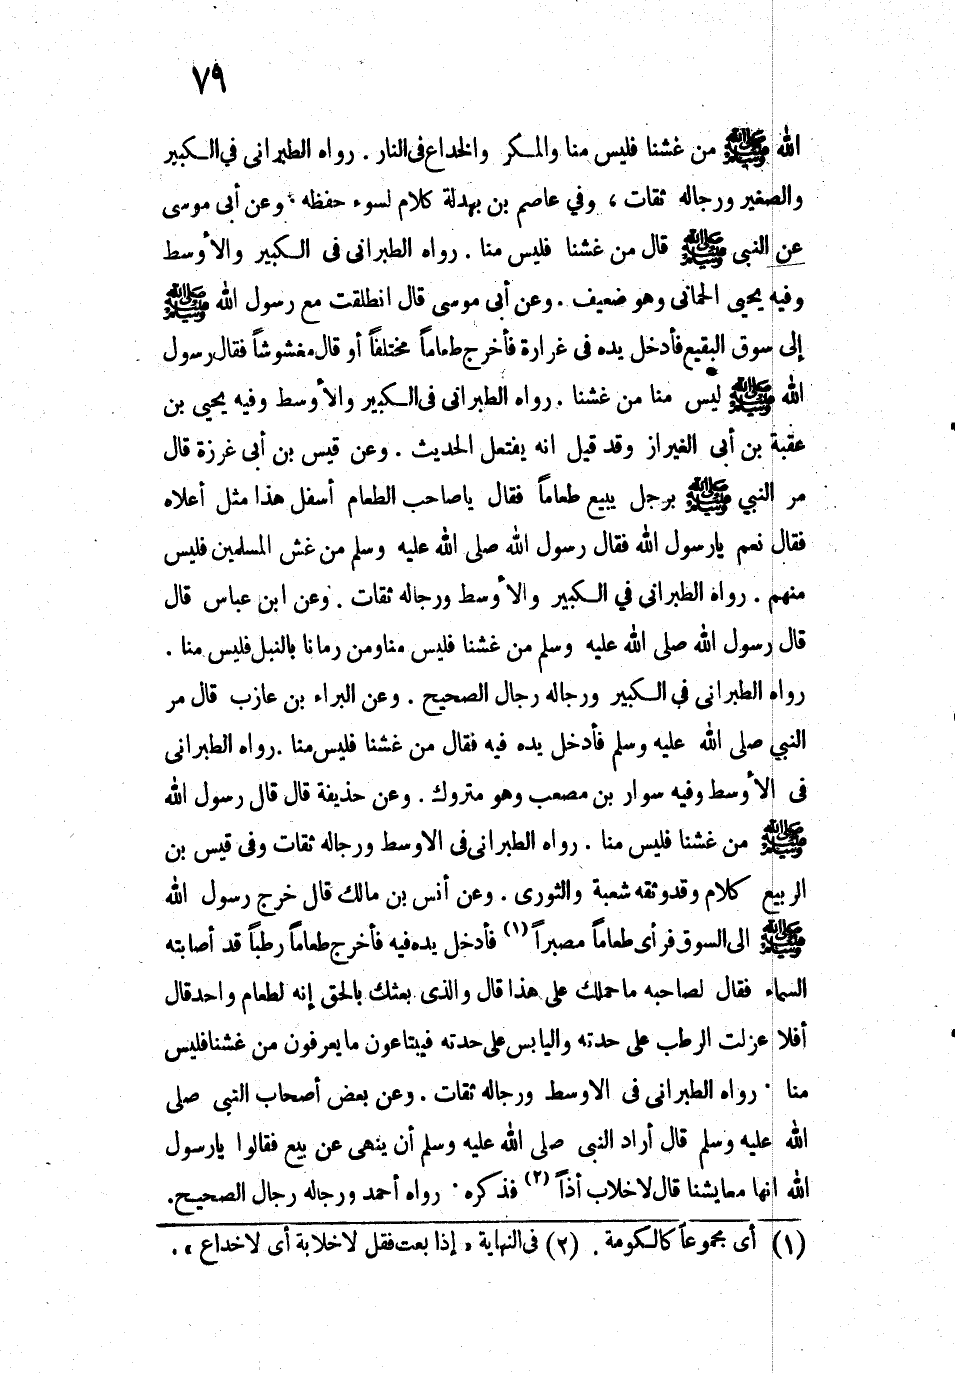 ٧٩
الله ﷺ من غشنا فليس منا والمكر والخداع فى النار . رواه الطبرانى في الكبير
والصغير ورجاله ثقات ، وفي عاصم بن بهدلة كلام لسوء حفظه ٠ وعن أبى موسى
عن النبى ﷺ قال من غشنا فليس منا . رواه الطبرانى فى الكبير والأوسط
وفيه يحيى الحمانى وهو ضعيف . وعن أبى موسى قال انطلقت مع رسول الله ﷺ
إلى سوق البقيع فأدخل يده فى غرارة فأخرج طعاماً مختلفاً أو قال مغشوشاً فقال رسول
الله ﷺ ليس منا من غشنا . رواه الطبرانى فى الكبير والأوسط وفيه يحيى بن
عقبة بن أبى الغيراز وقد قيل انه يفتعل الحديث . وعن قيس بن أبى غرزة قال
مر النبي ﷺ برجل يبيع طعاماً فقال ياصاحب الطعام أسفل هذا مثل أعلاه
فقال نعم يارسول الله فقال رسول الله صلى الله عليه وسلم من غش المسلمين فليس
منهم . رواه الطبرانى في الكبير والأوسط ورجاله ثقات . وعن ابن عباس قال
قال رسول الله صلى الله عليه وسلم من غشنا فليس منا ومن رمانا بالنبل فليس منا .
رواه الطبرانى في الكبير ورجاله رجال الصحيح . وعن البراء بن عازب قال مر
النبي صلى الله عليه وسلم فأدخل يده فيه فقال من غشنا فليس منا . رواه الطبرانى
فى الأوسط وفيه سوار بن مصعب وهو متروك . وعن حذيفة قال قال رسول الله
ﷺ من غشنا فليس منا . رواه الطبرانى فى الاوسط ورجاله ثقات وفى قيس بن
الربيع كلام وقد وثقه شعبة والثورى . وعن أنس بن مالك قال خرج رسول الله
ﷺ الى السوق فرأى طعاماً مصبراً (١) فأدخل يده فيه فأخرج طعاماً رطباً قد أصابته
السماء فقال لصاحبه ما حملك على هذا قال والذى بعثك بالحق إنه لطعام واحد قال
أفلا عزلت الرطب على حدته واليابس على حدته فيبتاعون ما يعرفون من غشنا فليس
منا ٠ رواه الطبرانى فى الاوسط ورجاله ثقات . وعن بعض أصحاب النبى صلى
الله عليه وسلم قال أراد النبى صلى الله عليه وسلم أن ينهى عن بيع فقالوا يارسول
الله انها معايشنا قال لاخلاب أذاً (٢) فذكره ٠ رواه أحمد ورجاله رجال الصحيح.
(١) أى مجموعاً كالكومة . (٢) فى النهاية « إذا بعت فقل لاخلابة أى لاخداع » .